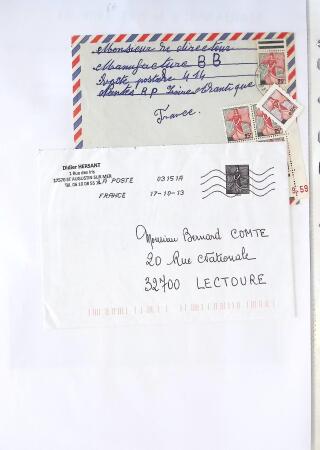 Monsieur le directeur
Manufacture B B
Boite postale 414
Nantes R.P. Loire Atlantique
France.
Didier HERSANT
1 Rue des Iris
17570 ST AUGUSTIN SUR MER
LA POSTE 03151A
FRANCE 17-10-13
Monsieur Bernard COMTE
20 Rue Nationale
32700 LECTOURE